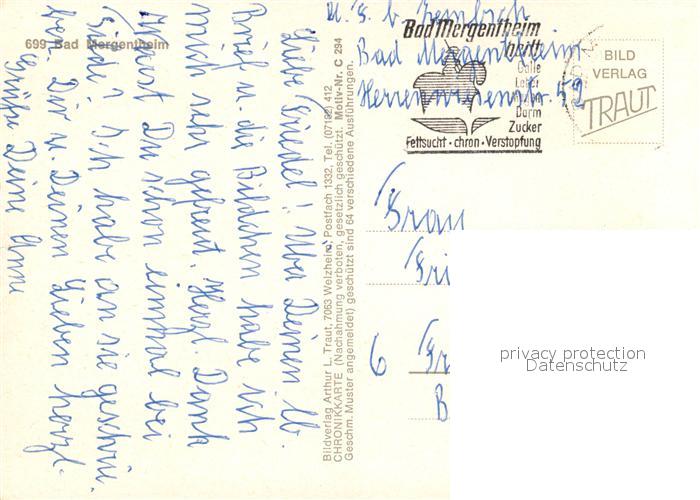 699 Bad Mergentheim
Liebe Friedel! Über Deinen lb.
Brief u. die Bildchen habe ich
mich sehr gefreut. Herzl. Dank
Warst Du schon einmal bei
Ich habe an sie geschrie
ben. Dir u. Deinen Lieben herzl.
Grüße Deine Anne
Bildverlag Arthur L. Traut, 7063 Welzheim, Postfach 1332, Tel. (07182) 412
CHRONIKKARTE (Nachahmung verboten, gesetzlich geschützt. Motiv-Nr. C 294
Geschm. Muster angemeldet) geschützt sind 64 verschiedene Ausführungen.
Bad Mergentheim
Herrenwiesenstr. 52
Bad Mergentheim
heilt
Galle
Leber
Magen
Darm
Zucker
Fettsucht · chron · Verstopfung
BILD
VERLAG
TRAUT
Frau
Fri
6 Fr
B
privacy protection
Datenschutz